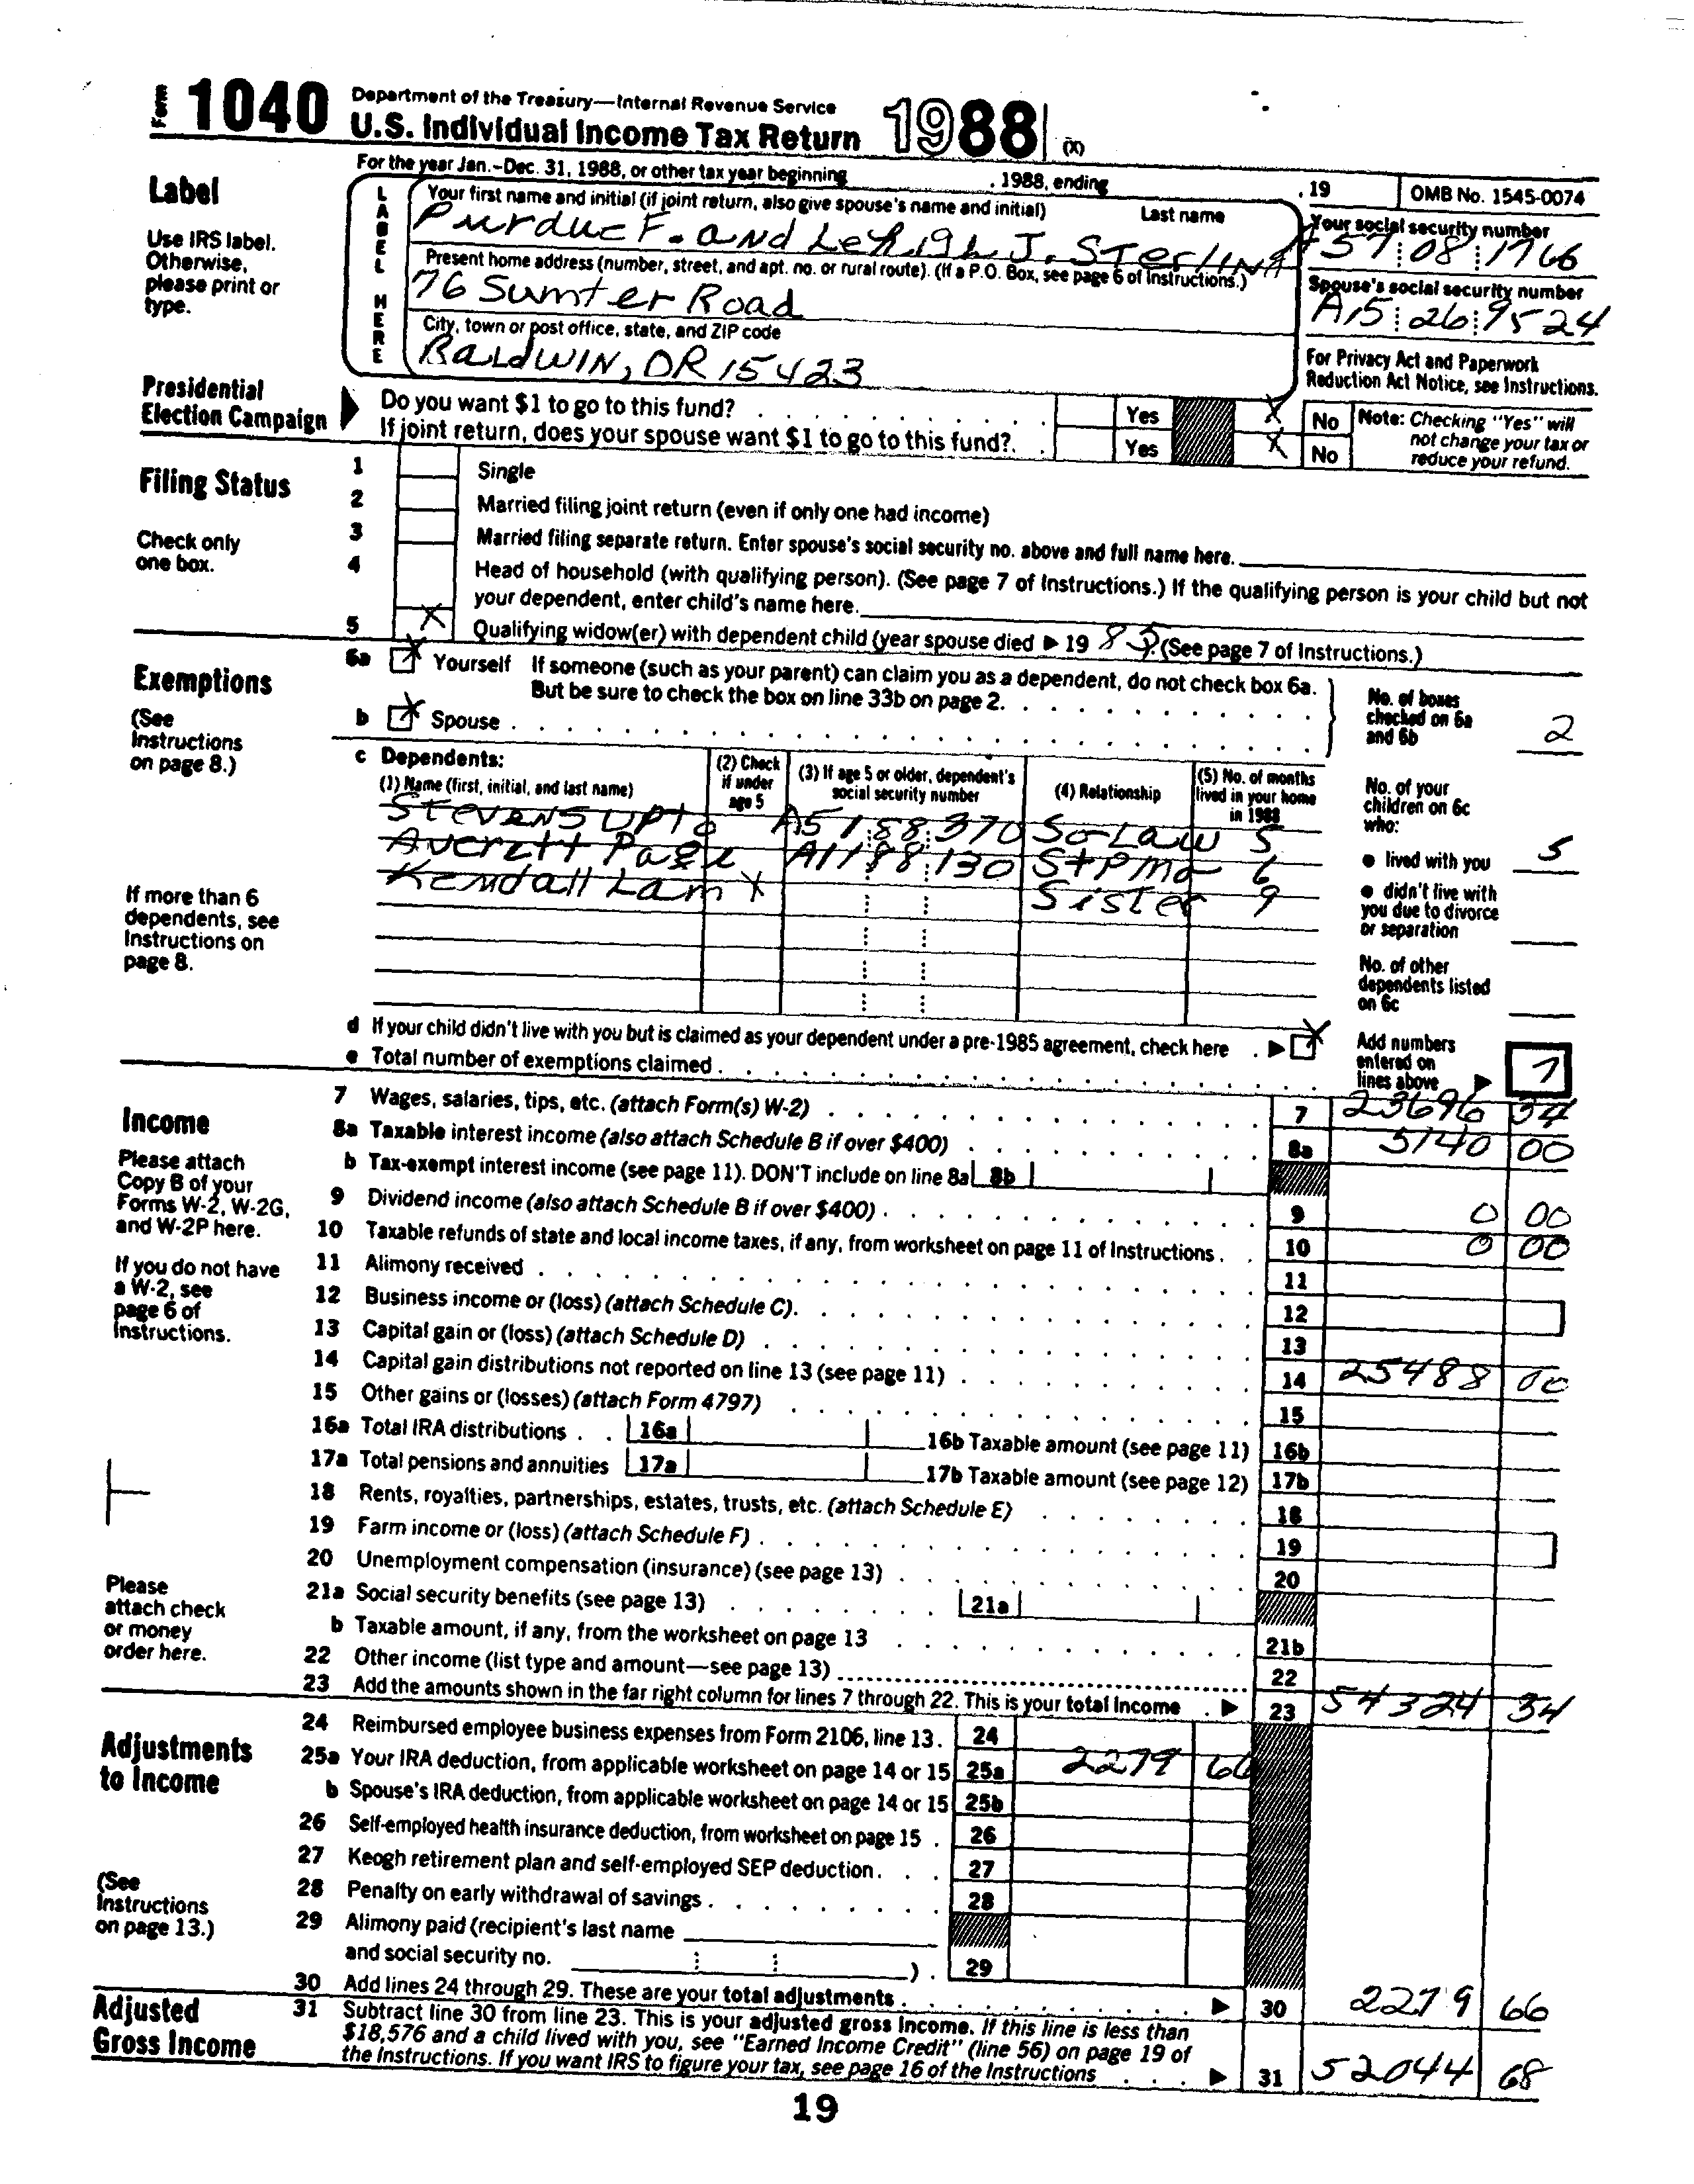 Form 1040 Department of the Treasury—Internal Revenue Service
U.S. Individual Income Tax Return 1988 (X)
For the year Jan.-Dec. 31, 1988, or other tax year beginning , 1988, ending , 19 OMB No. 1545-0074
Label
Use IRS label. Otherwise, please print or type.
LABEL HERE
Your first name and initial (if joint return, also give spouse's name and initial) Last name
Purdue F. and Lehigh J. Sterling
Your social security number
A 57 08 1766
Present home address (number, street, and apt. no. or rural route). (If a P.O. Box, see page 6 of Instructions.)
76 Sumter Road
Spouse's social security number
A15 26 9524
City, town or post office, state, and ZIP code
BALDWIN, OR 15423
For Privacy Act and Paperwork Reduction Act Notice, see Instructions.
Presidential Election Campaign
Do you want $1 to go to this fund? Yes X No
If joint return, does your spouse want $1 to go to this fund? Yes X No
Note: Checking "Yes" will not change your tax or reduce your refund.
Filing Status
Check only one box.
1 Single
2 Married filing joint return (even if only one had income)
3 Married filing separate return. Enter spouse's social security no. above and full name here.
4 Head of household (with qualifying person). (See page 7 of Instructions.) If the qualifying person is your child but not
your dependent, enter child's name here.
5 X Qualifying widow(er) with dependent child (year spouse died ▶ 19 85). (See page 7 of Instructions.)
Exemptions
(See Instructions on page 8.)
6a X Yourself If someone (such as your parent) can claim you as a dependent, do not check box 6a.
But be sure to check the box on line 33b on page 2.
b X Spouse
No. of boxes checked on 6a and 6b 2
c Dependents:
(1) Name (first, initial, and last name) (2) Check if under age 5 (3) If age 5 or older, dependent's social security number (4) Relationship (5) No. of months lived in your home in 1988
Stevens Upto A51 88 370 So Law 5
Averett Page A11 88 130 StPMo 6
Kendall Lam X Sister 9
No. of your children on 6c who:
● lived with you 5
● didn't live with you due to divorce or separation
No. of other dependents listed on 6c
If more than 6 dependents, see Instructions on page 8.
d If your child didn't live with you but is claimed as your dependent under a pre-1985 agreement, check here ▶ X
e Total number of exemptions claimed
Add numbers entered on lines above ▶ 7
Income
Please attach Copy B of your Forms W-2, W-2G, and W-2P here.
If you do not have a W-2, see page 6 of Instructions.
Please attach check or money order here.
7 Wages, salaries, tips, etc. (attach Form(s) W-2) 7 23696 34
8a Taxable interest income (also attach Schedule B if over $400) 8a 5140 00
b Tax-exempt interest income (see page 11). DON'T include on line 8a 8b
9 Dividend income (also attach Schedule B if over $400) 9 0 00
10 Taxable refunds of state and local income taxes, if any, from worksheet on page 11 of Instructions 10 0 00
11 Alimony received 11
12 Business income or (loss) (attach Schedule C) 12
13 Capital gain or (loss) (attach Schedule D) 13
14 Capital gain distributions not reported on line 13 (see page 11) 14 25488 00
15 Other gains or (losses) (attach Form 4797) 15
16a Total IRA distributions 16a 16b Taxable amount (see page 11) 16b
17a Total pensions and annuities 17a 17b Taxable amount (see page 12) 17b
18 Rents, royalties, partnerships, estates, trusts, etc. (attach Schedule E) 18
19 Farm income or (loss) (attach Schedule F) 19
20 Unemployment compensation (insurance) (see page 13) 20
21a Social security benefits (see page 13) 21a
b Taxable amount, if any, from the worksheet on page 13 21b
22 Other income (list type and amount—see page 13) 22
23 Add the amounts shown in the far right column for lines 7 through 22. This is your total income ▶ 23 54324 34
Adjustments to Income
(See Instructions on page 13.)
24 Reimbursed employee business expenses from Form 2106, line 13. 24
25a Your IRA deduction, from applicable worksheet on page 14 or 15 25a 2279 66
b Spouse's IRA deduction, from applicable worksheet on page 14 or 15 25b
26 Self-employed health insurance deduction, from worksheet on page 15 26
27 Keogh retirement plan and self-employed SEP deduction 27
28 Penalty on early withdrawal of savings 28
29 Alimony paid (recipient's last name
and social security no. ) 29
30 Add lines 24 through 29. These are your total adjustments ▶ 30 2279 66
Adjusted Gross Income
31 Subtract line 30 from line 23. This is your adjusted gross income. If this line is less than
$18,576 and a child lived with you, see "Earned Income Credit" (line 56) on page 19 of
the Instructions. If you want IRS to figure your tax, see page 16 of the Instructions ▶ 31 52044 68
19